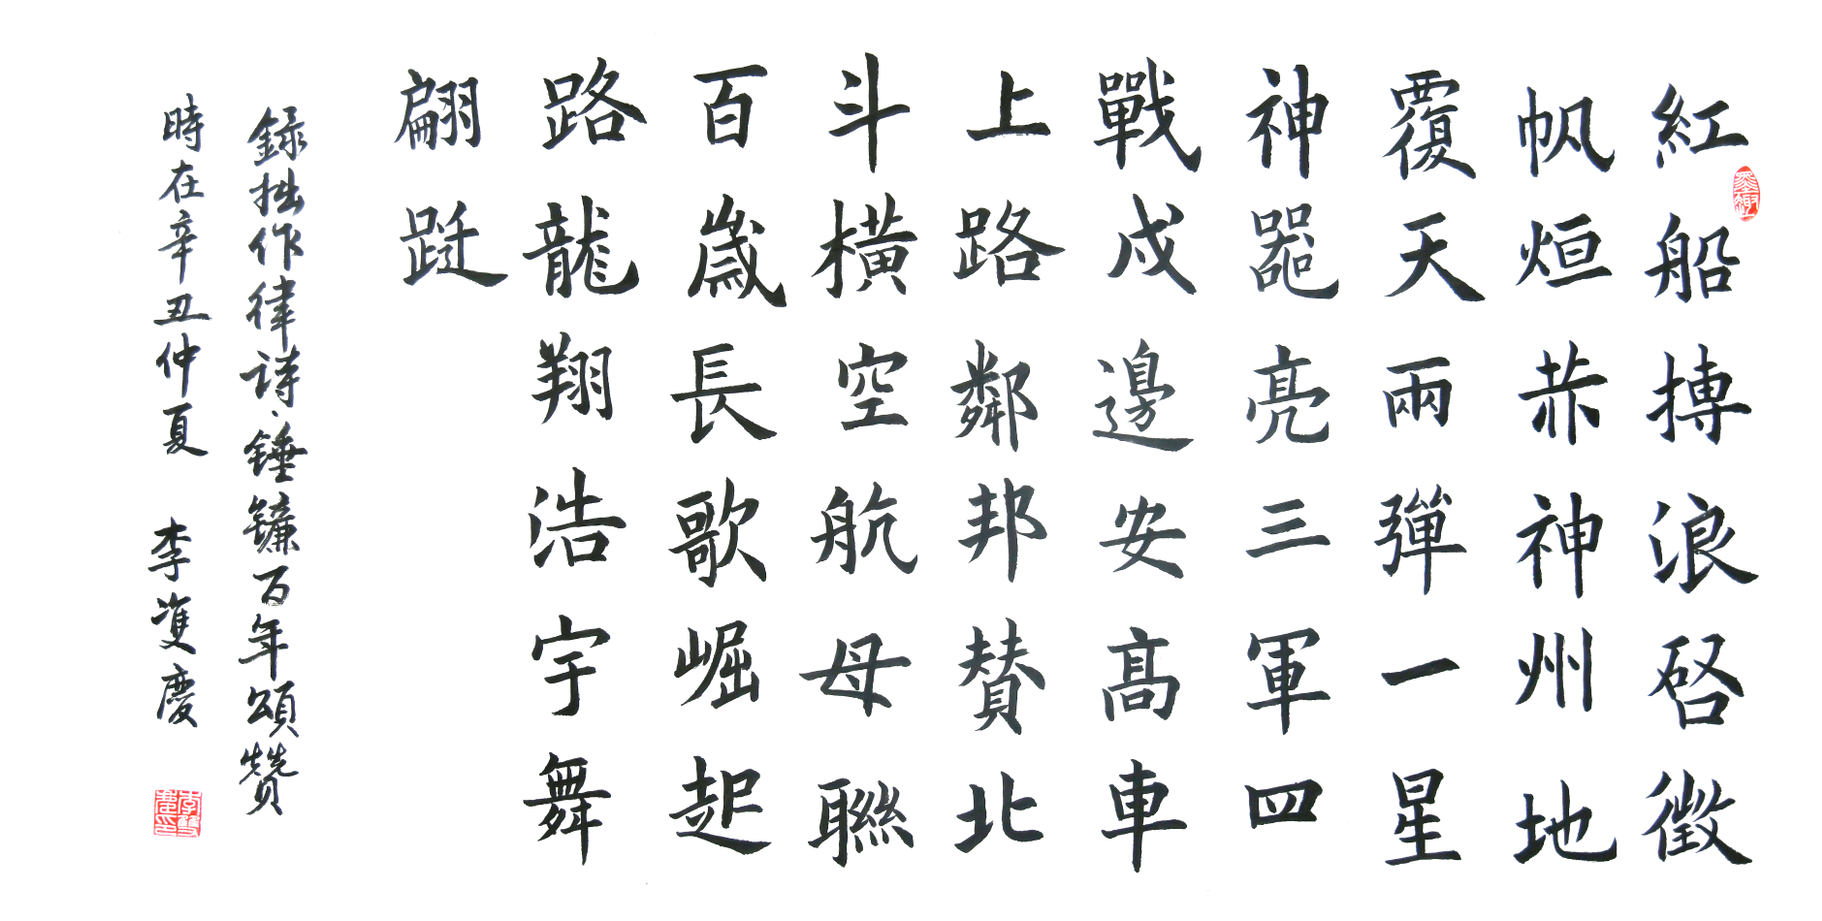 紅船搏浪啓徵
帆烜赤神州地
覆天兩彈一星
神器亮三軍四
戰戍邊安高車
上路鄰邦贊北
斗橫空航母聯
百歲長歌崛起
路龍翔浩宇舞
翩跹
録拙作律詩錘鐮百年頌贊
時在辛丑仲夏 李雙慶